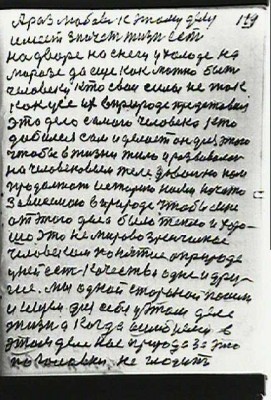 А раз любовь к этому делу 119
имеет значит жизнь есть
на дворе на снегу и холоде на
морозе да еще как может быть
человеку кто свои силы не так
как все их в природе представил
это дело самого человека кто
добился сам и делает он для этого
чтобы в жизни жило и развивалось
на человековом теле довольно нам
продолжать историю нами начато
Зависимою в природе чтобы еще
от этого дела было тепло и хоро-
шо это не мировоззренческое
человеческое понятие о природе
у ней есть качества одне и дру-
гие. мы одной стороной пошли
и ищем для себя у этом деле
жизнь а когда ошибаемся в
этом деле нас природа за это
по головки не гладит